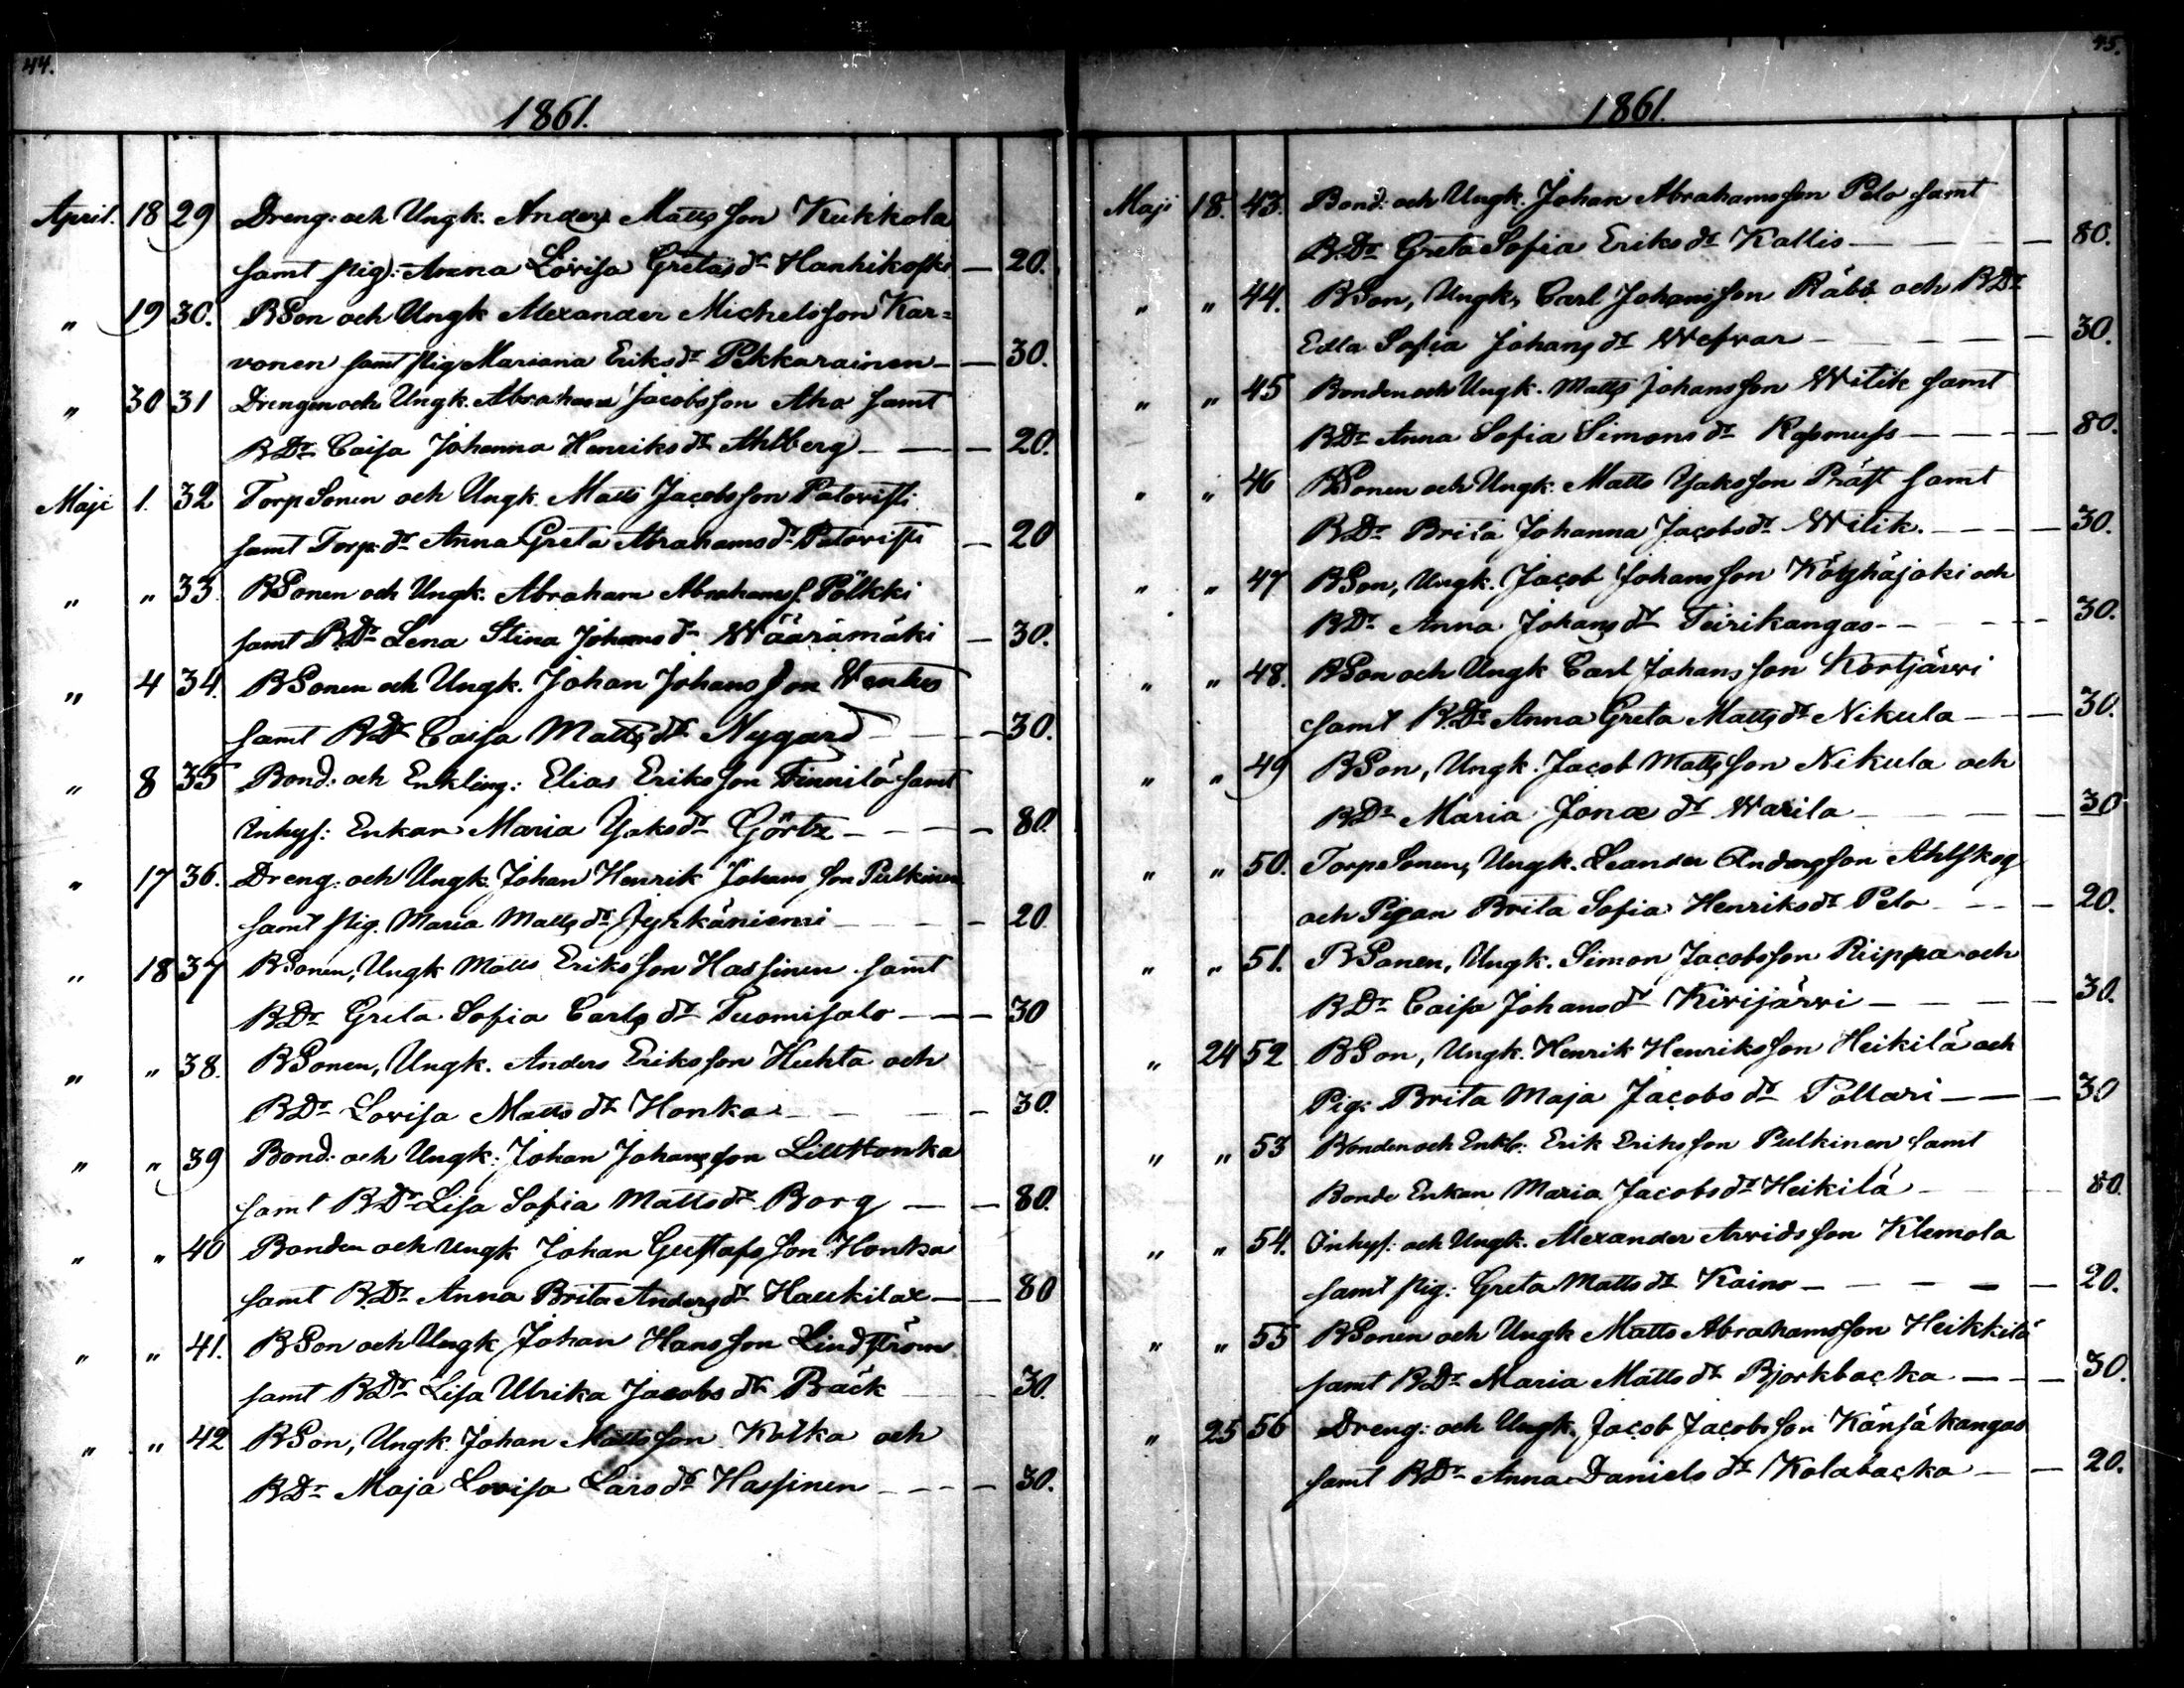 44.
1861.
April. 18 29 Dreng: och Ungk. Anders Matts son Kukkola
samt pig: Anna Lovisa Gretas dr Hanhikoski — 20.
" 19 30. BSon och Ungk Alexander Michelsson Kar=
vonen samt pig Mariana Eriks dr Pekkarainen — — 30.
" 30 31 Drengen och Ungk. Abraham Jacobsson Aho samt
BDr Caisa Johanna Henriks dr Ahlberg — — — 20.
Maji 1. 32 Torp Sonen och Ungk. Matts Jacobsson Patovisti
samt Torp. dr Anna Greta Abrahams dr Patovisti — 20
" " 33 BSonen och Ungk. Abraham Abrahams s. Pölkki
samt BDr Lena Stina Johans dr Wäärämäki — 30.
" 4 34. BSonen och Ungk. Johan Johans son Wenhes
samt BDr Caisa Matts dr Nygård — — 30.
" 8 35 Bond: och Enkling: Elias Eriksson Finnilä samt
Inhys: Enkan Maria Isaks dr Görtz — — — — 80.
" 17 36. Dreng: och Ungk. Johan Henrik Johans son Pulkinen
samt pig. Maria Matts dr Jyrkäniemi — — — 20
" 18 37 BSonen, Ungk Matts Eriksson Hassinen samt
BDr Greta Sofia Carls dr Tuomisalo — — — 30
" " 38. BSonen, Ungk. Anders Eriksson Huhta och
BDr Lovisa Matts dr Honka — — — — 30.
" " 39 Bond: och Ungk: Johan Johansson LillHonka
samt BDr Lisa Sofia Matts dr Borg — — 80.
" " 40 Bonden och Ungk Johan Gustafs son Honka
samt BDr Anna Brita Anders dr Haukilax — — 80
" " 41. BSon och Ungk Johan Hansson Lindström
samt BDr Lisa Ulrika Jacobs dr Bäck — — 30.
" " 42 BSon, Ungk. Johan Mattsson Kolka och
BDr Maja Lovisa Lars dr Hassinen — — — — 30.
45.
1861.
Maji 18. 43. Bond: och Ungk. Johan Abrahamsson Pelo samt
BDr Greta Sofia Eriks dr Kallis — — — — 80.
" " 44. BSon, Ungk, Carl Johansson Råbb och BDr
Edla Sofia Johans dr Wefvar — — — — — 30.
" " 45 Bonden och Ungk. Matts Johansson Witik samt
BDr Anna Sofia Simons dr Rasmuss — — — — 80.
" " 46 BSonen och Ungk. Matts Isaksson Präst samt
BDr Brita Johanna Jacobs dr Witik. — — — — 30.
" " 47 BSon, Ungk. Jacob Johansson Köyhäjoki och
BDr Anna Johans dr Teirikangas — — — — 30.
" " 48. BSon och Ungk Carl Johansson Kortjärvi
samt BDr Anna Greta Matts dr Nikula — — — 30.
" " 49 BSon, Ungk. Jacob Mattsson Nikula och
BDr Maria Jonæ dr Warila — — — — 30
" " 50. TorpeSonen, Ungk. Leander Andersson Ahlskog
och Pigan Brita Sofia Henriks dr Pelo — — — 20.
" " 51. BSonen, Ungk. Simon Jacobsson Riippa och
BDr Caisa Johans dr Kivijärvi — — — — 30.
" 24 52 BSon, Ungk. Henrik Henriksson Heikilä och
Pig: Brita Maja Jacobs dr Pollari — — — 30
" " 53 Bonden och Enkl: Erik Eriksson Pulkinen samt
Bonde Enkan Maria Jacobs dr Heikilä — — — 80.
" " 54. Inhys: och Ungk. Alexander Arvidsson Klemola
samt pig: Greta Matts dr Kaino — — — — — 20.
" " 55 BSonen och Ungk Matts Abrahamsson Heikkilä
samt BDr Maria Matts dr Bjorkbacka — — — 30.
" 25 56 Dreng: och Ungk. Jacob Jacobsson Känsäkangas
samt BDr Anna Daniels dr Kolabacka — — 20.